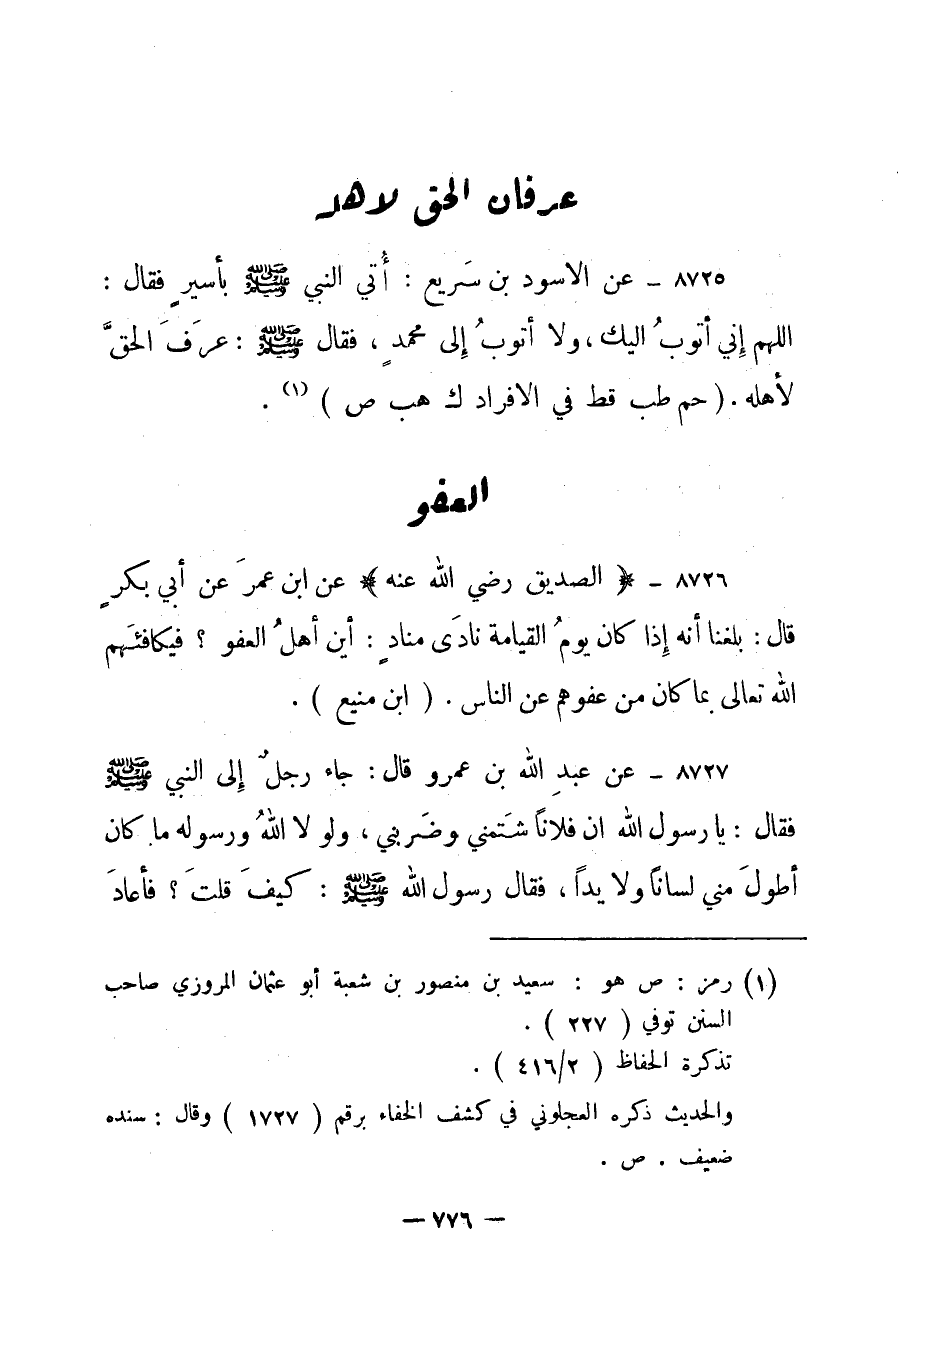 عرفان الحق لاهله
٨٧٢٥ ـ عن الاسود بن سَريع : أُتي النبي ﷺ بأسيرٍ فقال :
اللهم إِني أتوبُ اليك ، ولا أتوبُ إِلى محمدٍ ، فقال ﷺ : عرَفَ الحقَّ
لأهله . ( حم طب قط في الافراد ك هب ص ) (١) .
العفو
٨٧٢٦ ـ ﴿ الصديق رضي الله عنه ﴾ عن ابن عمرَ عن أبي بكرٍ
قال : بلغنا أنه إِذا كان يومُ القيامة نادَى منادٍ : أين أهلُ العفو ؟ فيكافئَهم
الله تعالى بما كان من عفوهم عن الناس . ( ابن منيع ) .
٨٧٢٧ ـ عن عبدِ الله بن عمرو قال : جاء رجلٌ إِلى النبي ﷺ
فقال : يا رسول الله ان فلاناً شَتمني وضَربني ، ولو لا اللهُ ورسوله ما كان
أطولَ مني لساناً ولا يداً ، فقال رسول الله ﷺ : كيفَ قلتَ ؟ فأعادَ
(١) رمز : ص هو : سعيد بن منصور بن شعبة أبو عثمان المروزي صاحب
السنن توفي ( ٢٢٧ ) .
تذكرة الحفاظ ( ٤١٦/٢ ) .
والحديث ذكره العجلوني في كشف الخفاء برقم ( ١٧٢٧ ) وقال : سنده
ضعيف . ص .
— ٧٧٦ —